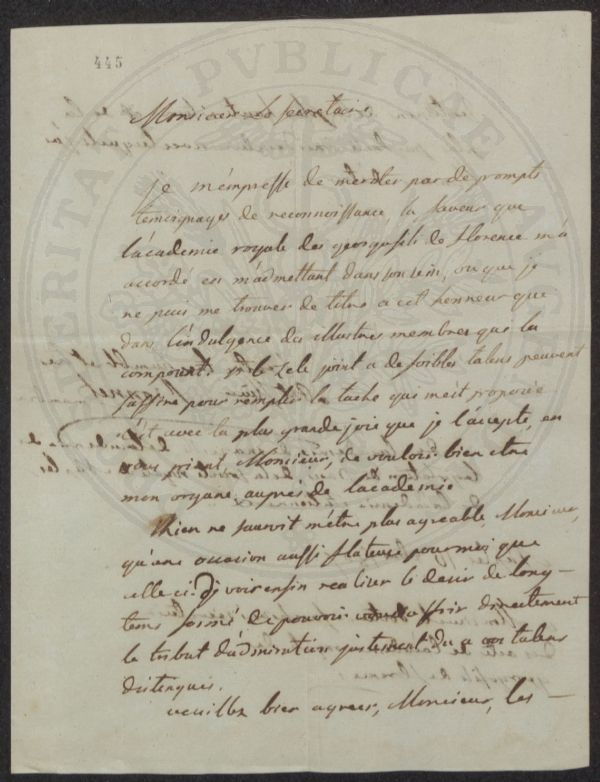 445
Monsieur Le secretaire
je m'empresse de meriter par de prompts
temoignages de reconnoissance la faveur que
l'academie royale des georgofili de florence m'a
accordé en m'admettant dans son sein, vu que je
ne puis me trouver de titre a cet honneur que
dans l'indulgence des illustres membres que la
composent. si le zele joint a de foibles talens peuvent
suffire pour remplir la tache que m'est proposée
c'est avec la plus grande joie que je l'accepte, en
vous priant, Monsieur, de vouloir bien etre
mon organe auprès de l'academie.
Rien ne sauroit m'être plus agreable Monsieur,
qu'une occasion aussi flateuse pour moi que
celle ci. D'y voir enfin realiser le desir de long-
tems formé de pouvoir offrir directement
le tribut d'admiration justement du a vos talens
distingués.
veuillez bien agreer, Monsieur, les
PVBLICAE
VERITAS